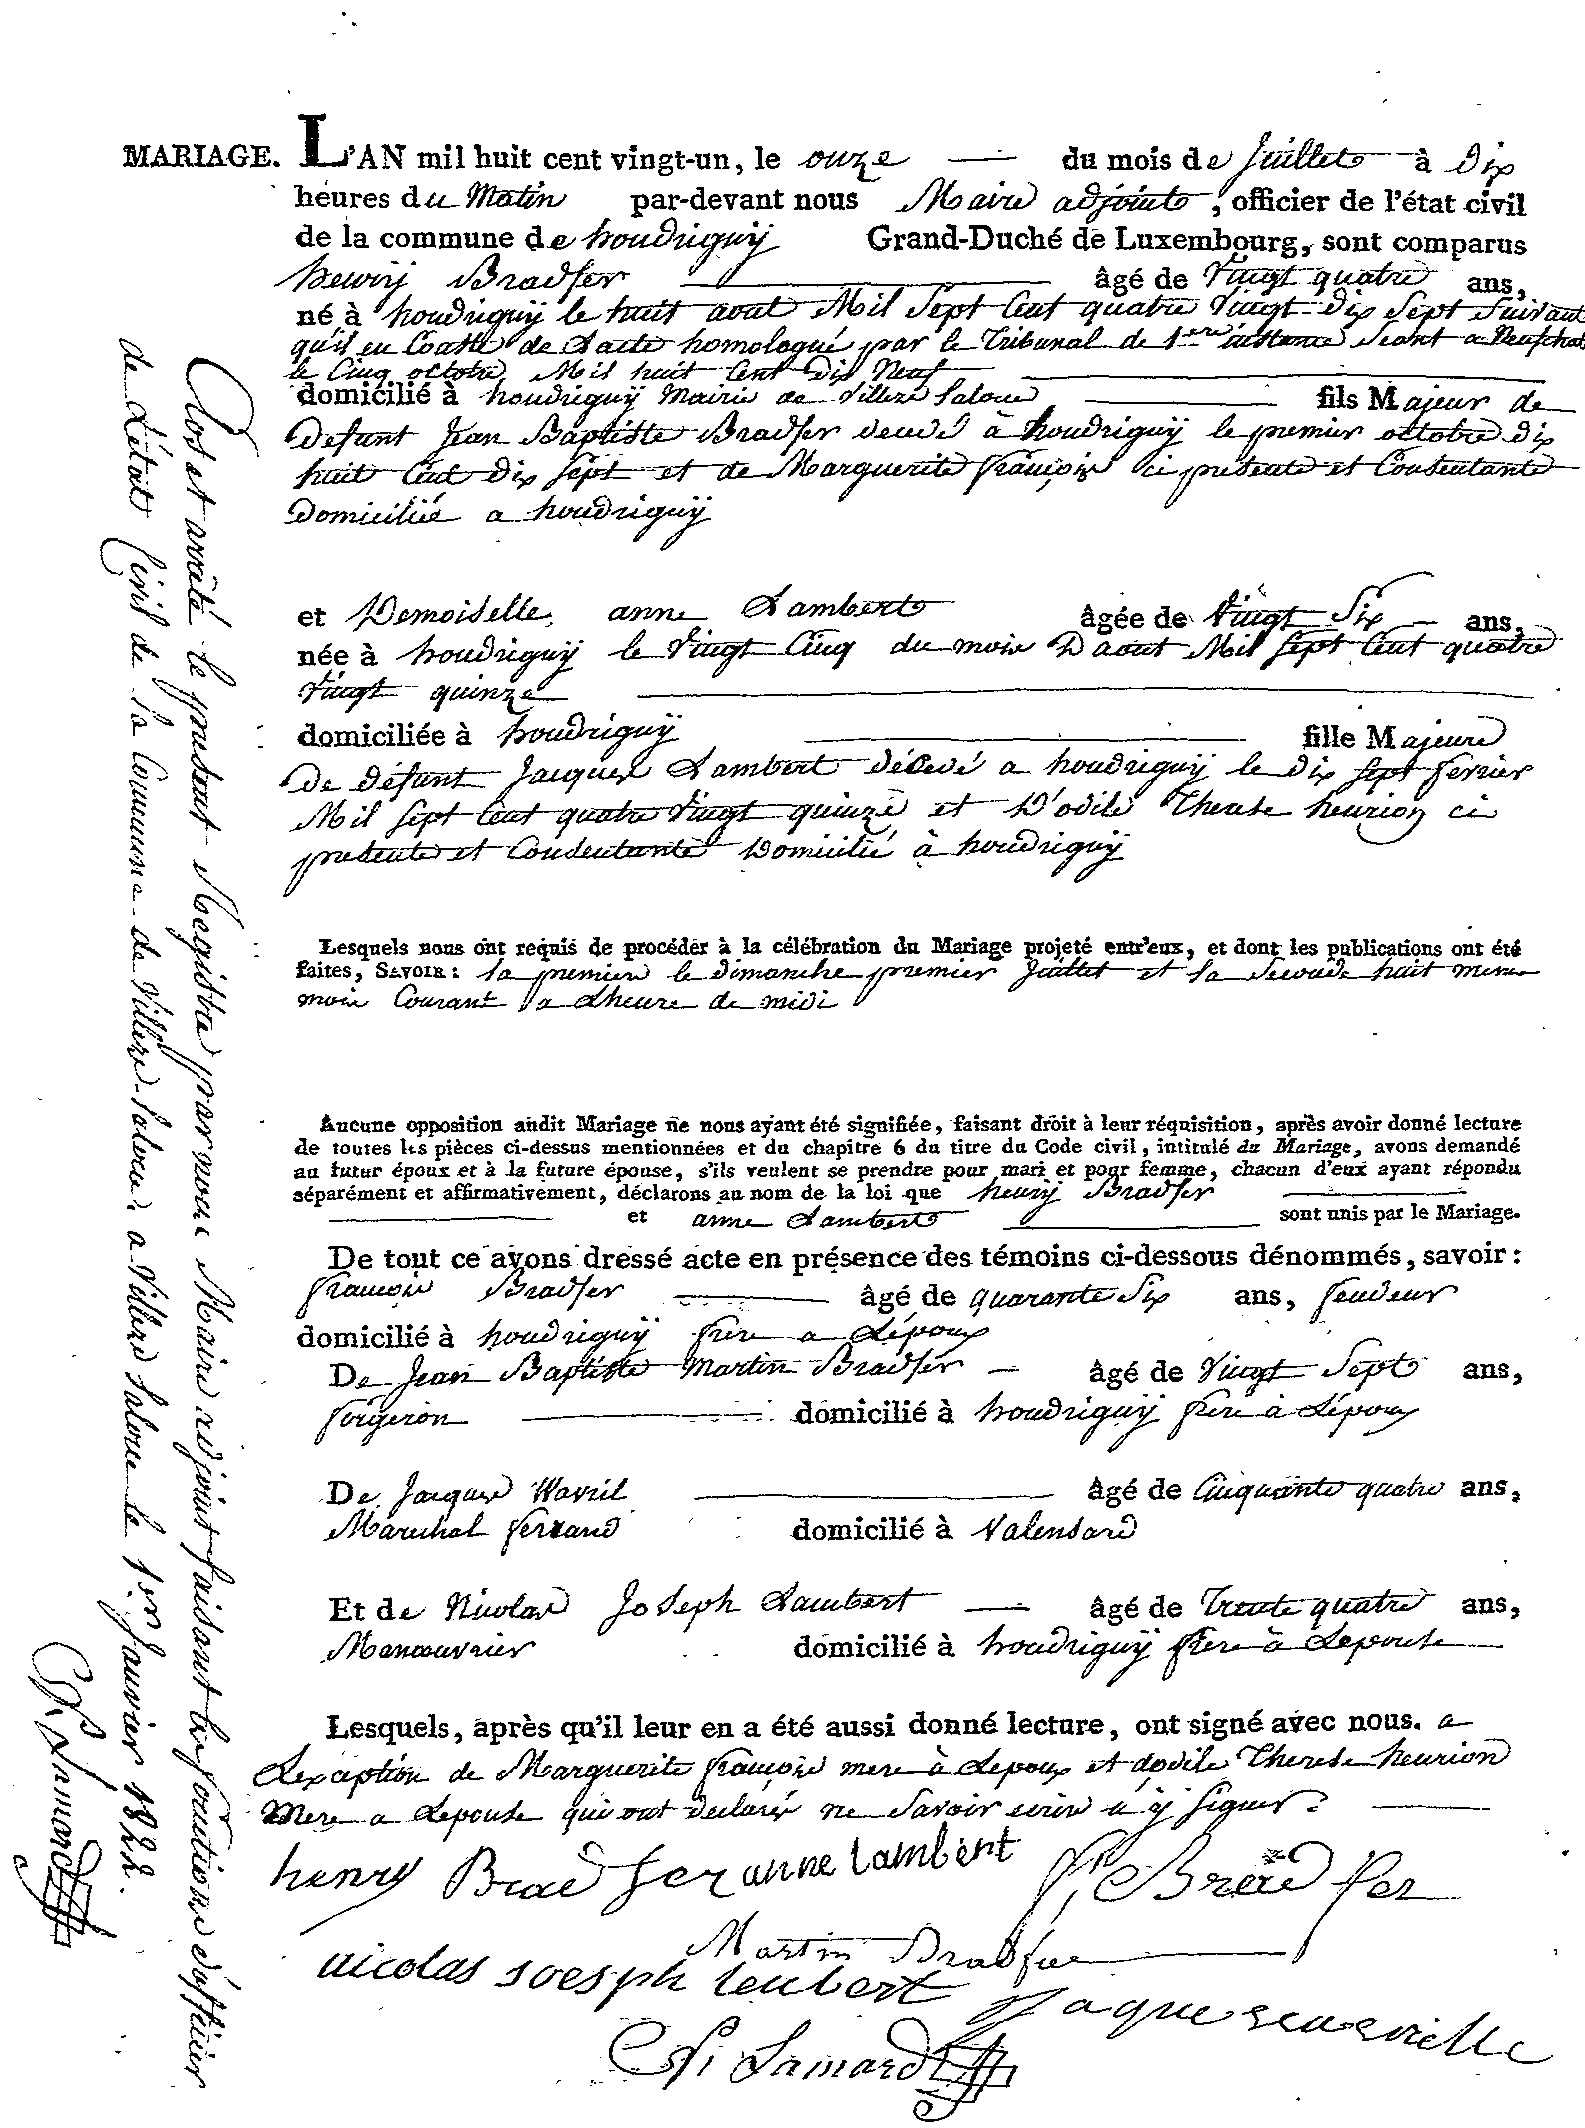 MARIAGE. L'AN mil huit cent vingt-un, le onze du mois de Juillet à Dix
heures du Matin par-devant nous Maire adjoint, officier de l'état civil
de la commune de houdrigny Grand-Duché de Luxembourg, sont comparus
henry Bradfer âgé de Vingt quatre ans,
né à houdrigny le huit aout Mil Sept Cent quatre Vingt Dix Sept Suivant
qu'il en Coatte de Lacte homologué par le Tribunal de 1ere instance Seant a Neufchat
le Cinq octobre Mil huit Cent Dix Neuf
domicilié à houdrigny Mairie de Villers Saloue fils Majeur de
Defunt Jean Baptiste Bradfer decedé à houdrigny le premier octobre dix
huit Cent Dix Sept et de Marguerite françois ci presente et Consentante
Domiciliée a houdrigny
et Demoiselle anne Lambert âgée de Vingt Six ans,
née à houdrigny le Vingt Cinq du mois Daout Mil Sept Cent quatre
Vingt quinze
domiciliée à houdrigny fille Majeure
De défunt Jacques Lambert décédé a houdrigny le dix sept fevrier
Mil Sept Cent quatre Vingt quinze et D'odile Therese henrion ci
presente et Consentante Domicilié à houdrigny
Lesquels nous ont requis de procéder à la célébration du Mariage projeté entr'eux, et dont les publications ont été
faites, SAVOIR : la premiere le dimanche premier Juillet et la Seconde huit meme
mois Courant a Lheure de midi
Aucune opposition audit Mariage ne nous ayant été signifiée, faisant droit à leur réquisition, après avoir donné lecture
de toutes les pièces ci-dessus mentionnées et du chapitre 6 du titre du Code civil, intitulé du Mariage, avons demandé
au futur époux et à la future épouse, s'ils veulent se prendre pour mari et pour femme, chacun d'eux ayant répondu
séparément et affirmativement, déclarons au nom de la loi que henry Bradfer
et anne Lambert sont unis par le Mariage.
De tout ce avons dressé acte en présence des témoins ci-dessous dénommés, savoir :
françois Bradfer âgé de quarante Six ans, fendeur
domicilié à houdrigny frere a Lépoux
De Jean Baptiste Martin Bradfer âgé de Vingt Sept ans,
forgeron domicilié à houdrigny frere à Lépoux
De Jacques Wavril âgé de Cinquante quatre ans,
Marechal ferrand domicilié à Valensard
Et de Nicolas Joseph Lambert âgé de Trente quatre ans,
Manoeuvrier domicilié à houdrigny frere à Lepouse
Lesquels, après qu'il leur en a été aussi donné lecture, ont signé avec nous. a
Lexception de Marguerite françois mere à Lepoux et dodile Therese henrion
Mere a Lepouse qui ont declarés ne Savoir ecrire n'y Signer
henry Brad fer anne lambert fr Brad fer
Martin Bradfer
nicolas Joesph lenbert Jaque
Lamard
Clos et arrêté le present Registre par nous Maire adjoint faisant les fonctions d'officier
de Létat Civil de la Commune de Villers Saloue a Villers Saloue le 1er Janvier 1822.
Lamard